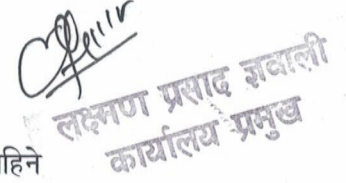 लक्ष्मण प्रसाद ज्ञवाली
कार्यालय प्रमुख
हिने